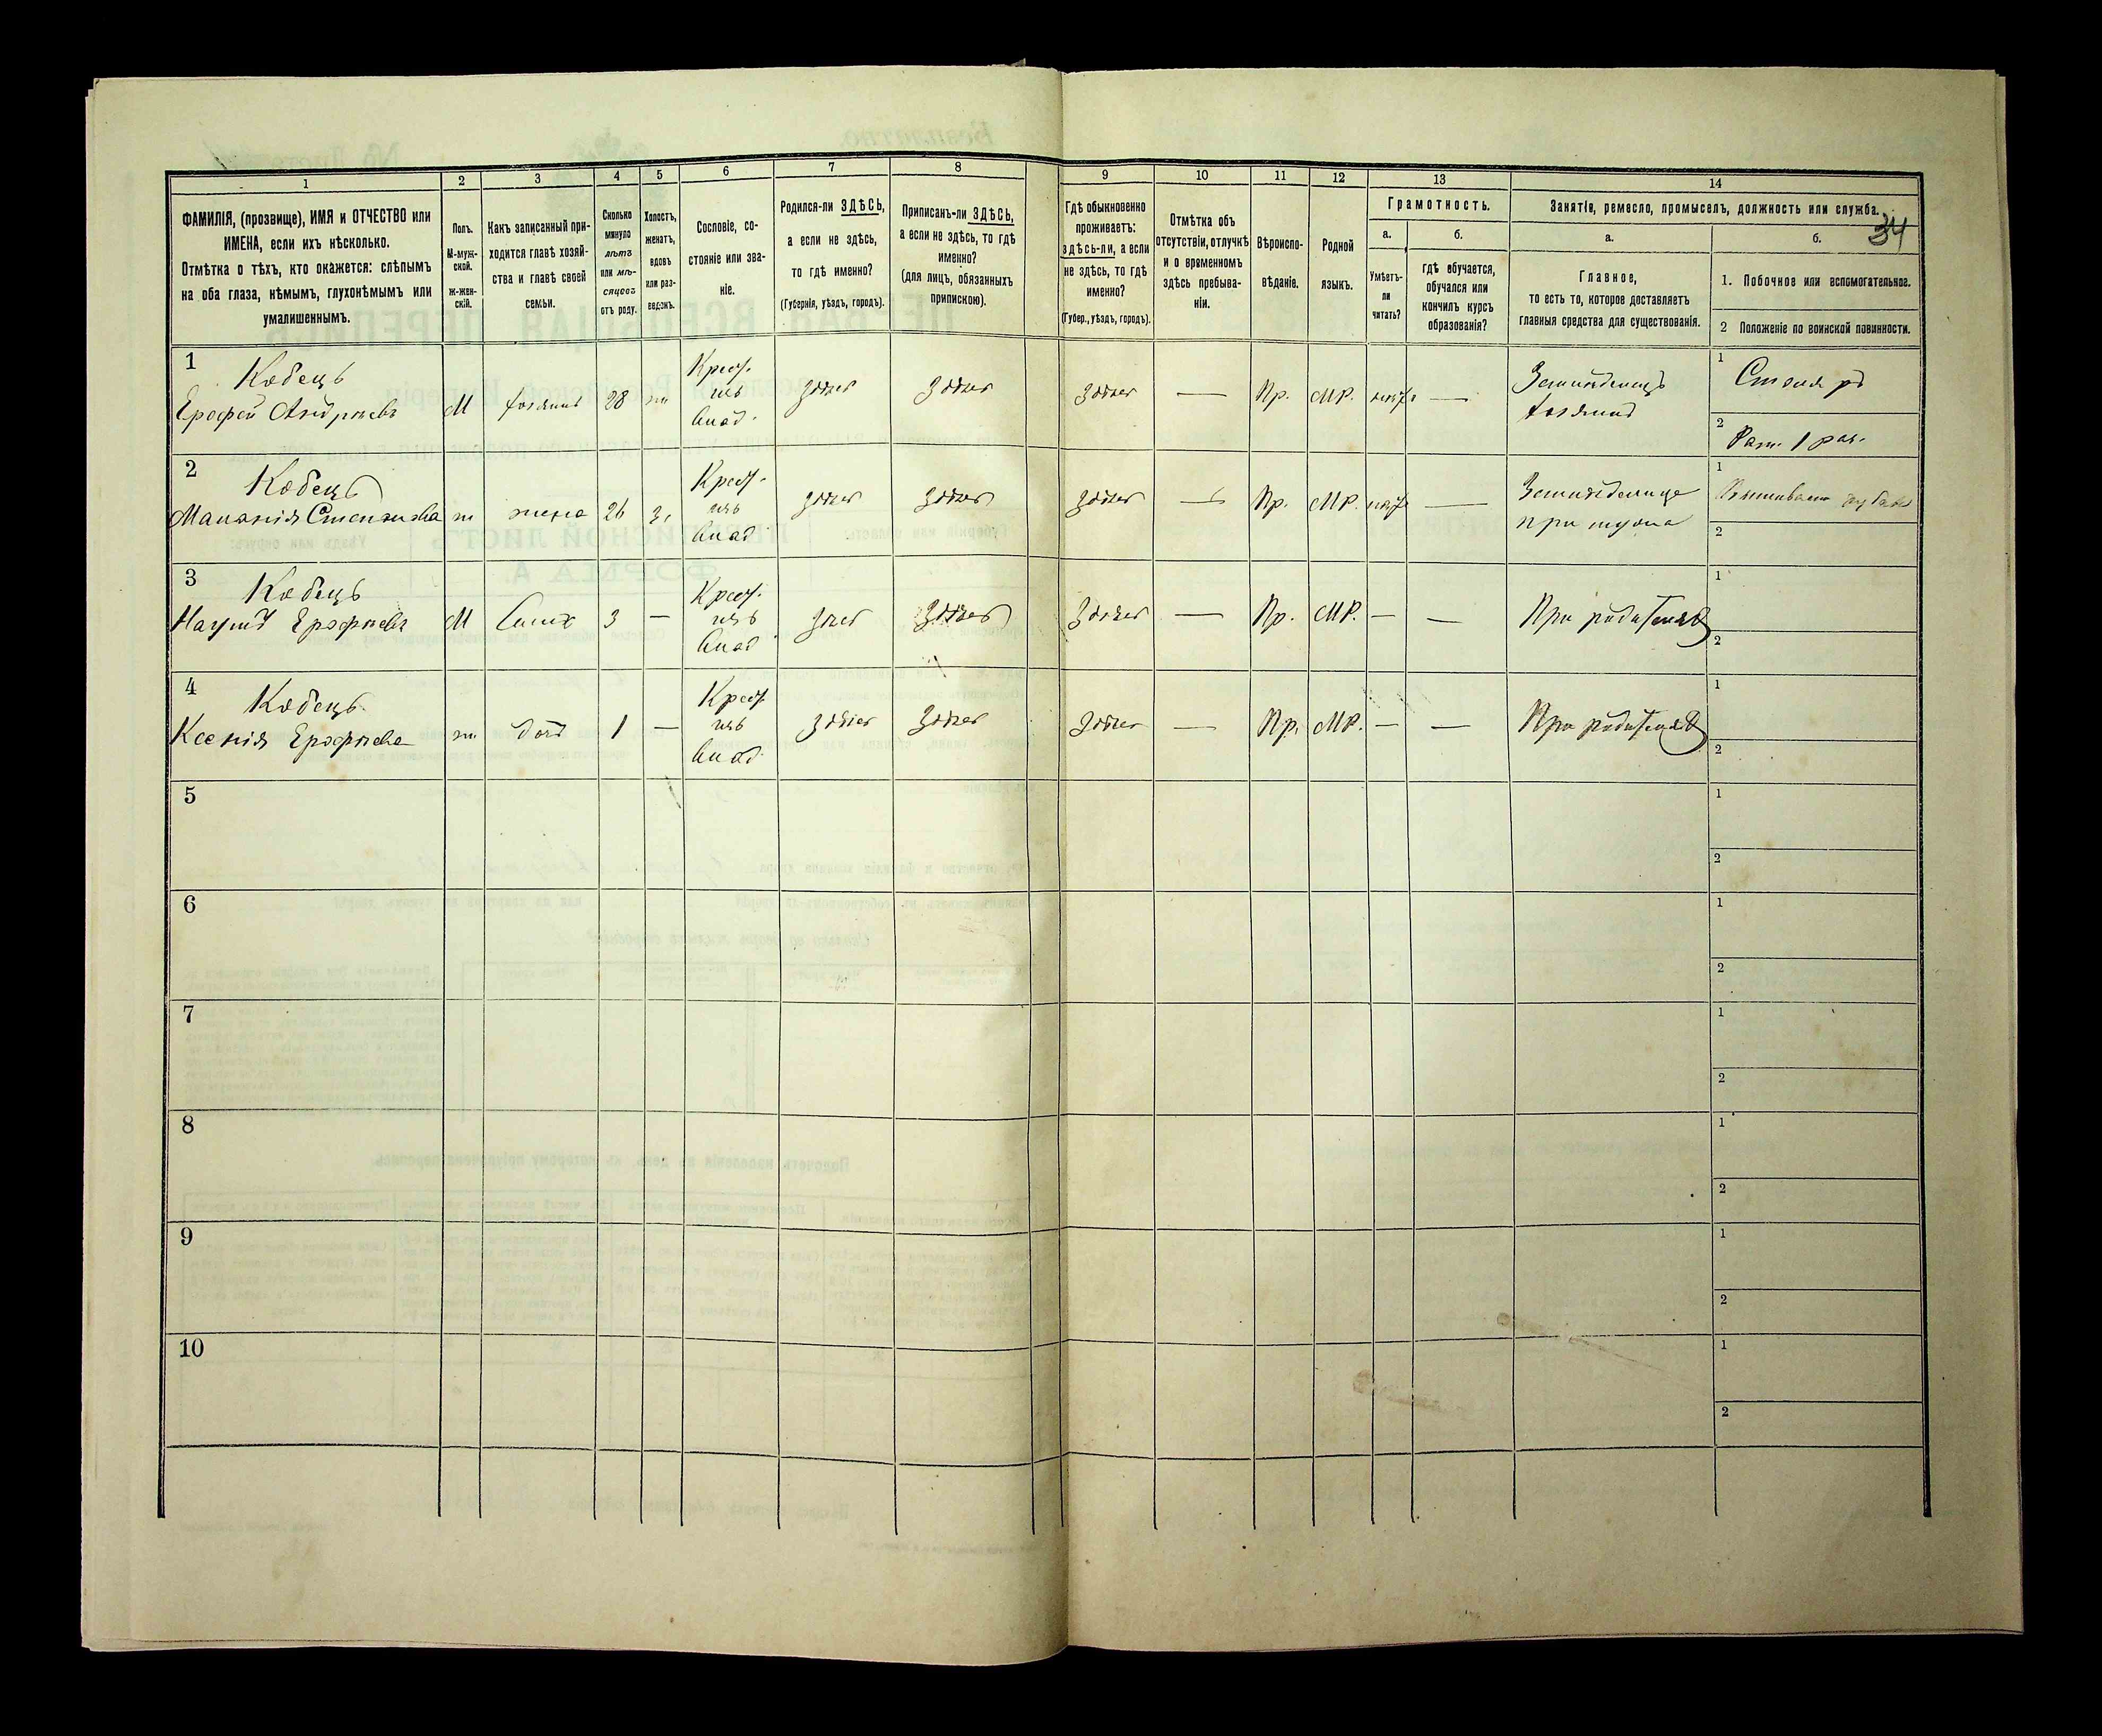 34
1 2 3 4 5 6 7 8 9 10 11 12 13 14
ФАМИЛІЯ, (прозвище), ИМЯ и ОТЧЕСТВО или
ИМЕНА, если ихъ нѣсколько.
Отмѣтка о тѣхъ, кто окажется: слѣпымъ
на оба глаза, нѣмымъ, глухонѣмымъ или
умалишеннымъ.
Полъ.
М-муж-
ской.
Ж-жен-
скій.
Какъ записанный при-
ходится главѣ хозяй-
ства и главѣ своей
семьи.
Сколько
минуло
лѣтъ
или мѣ-
сяцевъ
отъ роду.
Холостъ,
женатъ,
вдовъ
или раз-
веденъ.
Сословіе, со-
стояніе или зва-
ніе.
Родился-ли ЗДѢСЬ,
а если не здѣсь,
то гдѣ именно?
(Губернія, уѣздъ, городъ).
Приписанъ-ли ЗДѢСЬ,
а если не здѣсь, то гдѣ
именно?
(для лицъ, обязанныхъ
припискою).
Гдѣ обыкновенно
проживаетъ:
здѣсь-ли, а если
не здѣсь, то гдѣ
именно?
(Губер., уѣздъ, городъ).
Отмѣтка объ
отсутствіи, отлучкѣ
и о временномъ
здѣсь пребыва-
ніи.
Вѣроиспо-
вѣданіе.
Родной
языкъ.
Грамотность.
а.
Умѣетъ-
ли
читать?
б.
гдѣ обучается,
обучался или
кончилъ курсъ
образованія?
Занятіе, ремесло, промыселъ, должность или служба.
а.
Главное,
то есть то, которое доставляетъ
главныя средства для существованія.
б.
1. Побочное или вспомогательное.
2 Положеніе по воинской повинности.
1
Кобецъ
Ерофей Андреевъ
М
хозяинъ
28
Крест.
изъ
влад.
здѣсь
здѣсь
здѣсь
—
Пр.
МР.
нѣтъ
—
Земледелецъ
хозяинъ
1
2
Рат. 1 раз.
2
Кобецъ
Степанова
ж
жена
26
з.
Крест.
изъ
влад
здѣсь
здѣсь
здѣсь
—
Пр.
МР.
нѣтъ
—
Земледелица
при мужѣ
1
2
3
Кобецъ
Наумъ Ерофеевъ
М
сынъ
3
—
Крест.
изъ
влад
здѣсь
здѣсь
здѣсь
—
Пр.
МР.
—
—
При родителяхъ
1
2
4
Кобецъ
Ксенія Ерофеева
ж
дочь
1
—
Крест
изъ
влад.
здѣсь
здѣсь
здѣсь
—
Пр.
МР.
—
—
При родителяхъ
1
2
5
1
2
6
1
2
7
1
2
8
1
2
9
1
2
10
1
2